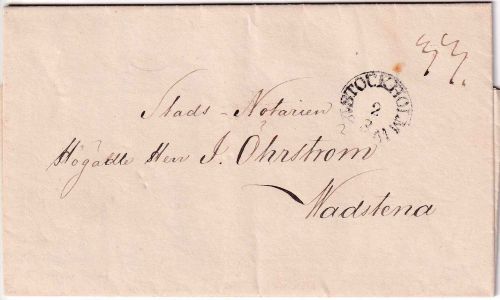 33.
STOCKHOLM
2
Stads-Notarien
Högädle Herr J. Öhrstrom
Wadstena